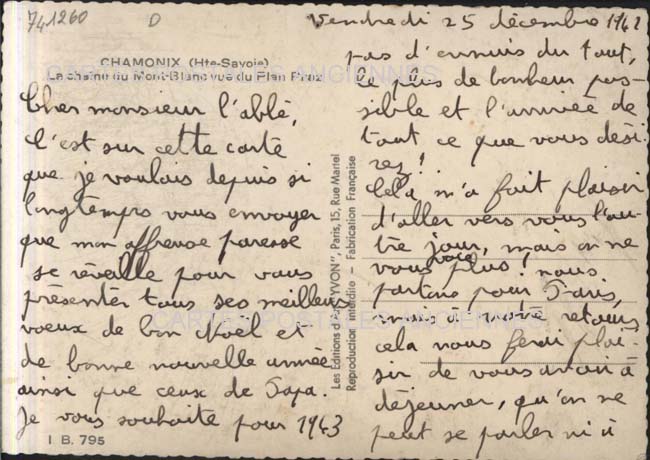 741260
D
Vendredi 25 décembre 1942
CHAMONIX (Hte-Savoie)
La chaîne du Mont-Blanc vue du Plan Praz
CARTES POSTALES ANCIENNES
Cher monsieur l'abbé,
C'est sur cette carte
que je voulais depuis si
longtemps vous envoyer
que mon affreuse paresse
se réveille pour vous
présenter tous ses meilleurs
voeux de bon Noël et
de bonne nouvelle année
ainsi que ceux de Papa.
Je vous souhaite pour 1943
I B. 795
Les Editions d'Art "YVON", Paris, 15, Rue Martel
Reproduction interdite - Fabrication Française
pas d'ennuis du tout,
le plus de bonheur pos-
sible et l'arrivée de
tout ce que vous dési-
rez!
Celà m'a fait plaisir
d'aller vers vous l'au-
tre jour, mais on ne
vous voie plus! nous
partons pour Paris,
mais à notre retour,
cela nous ferai plai-
sir de vous avoir à
déjeuner, qu'on ne
peut se parler ni à
CARTES POSTALES ANCIENNES